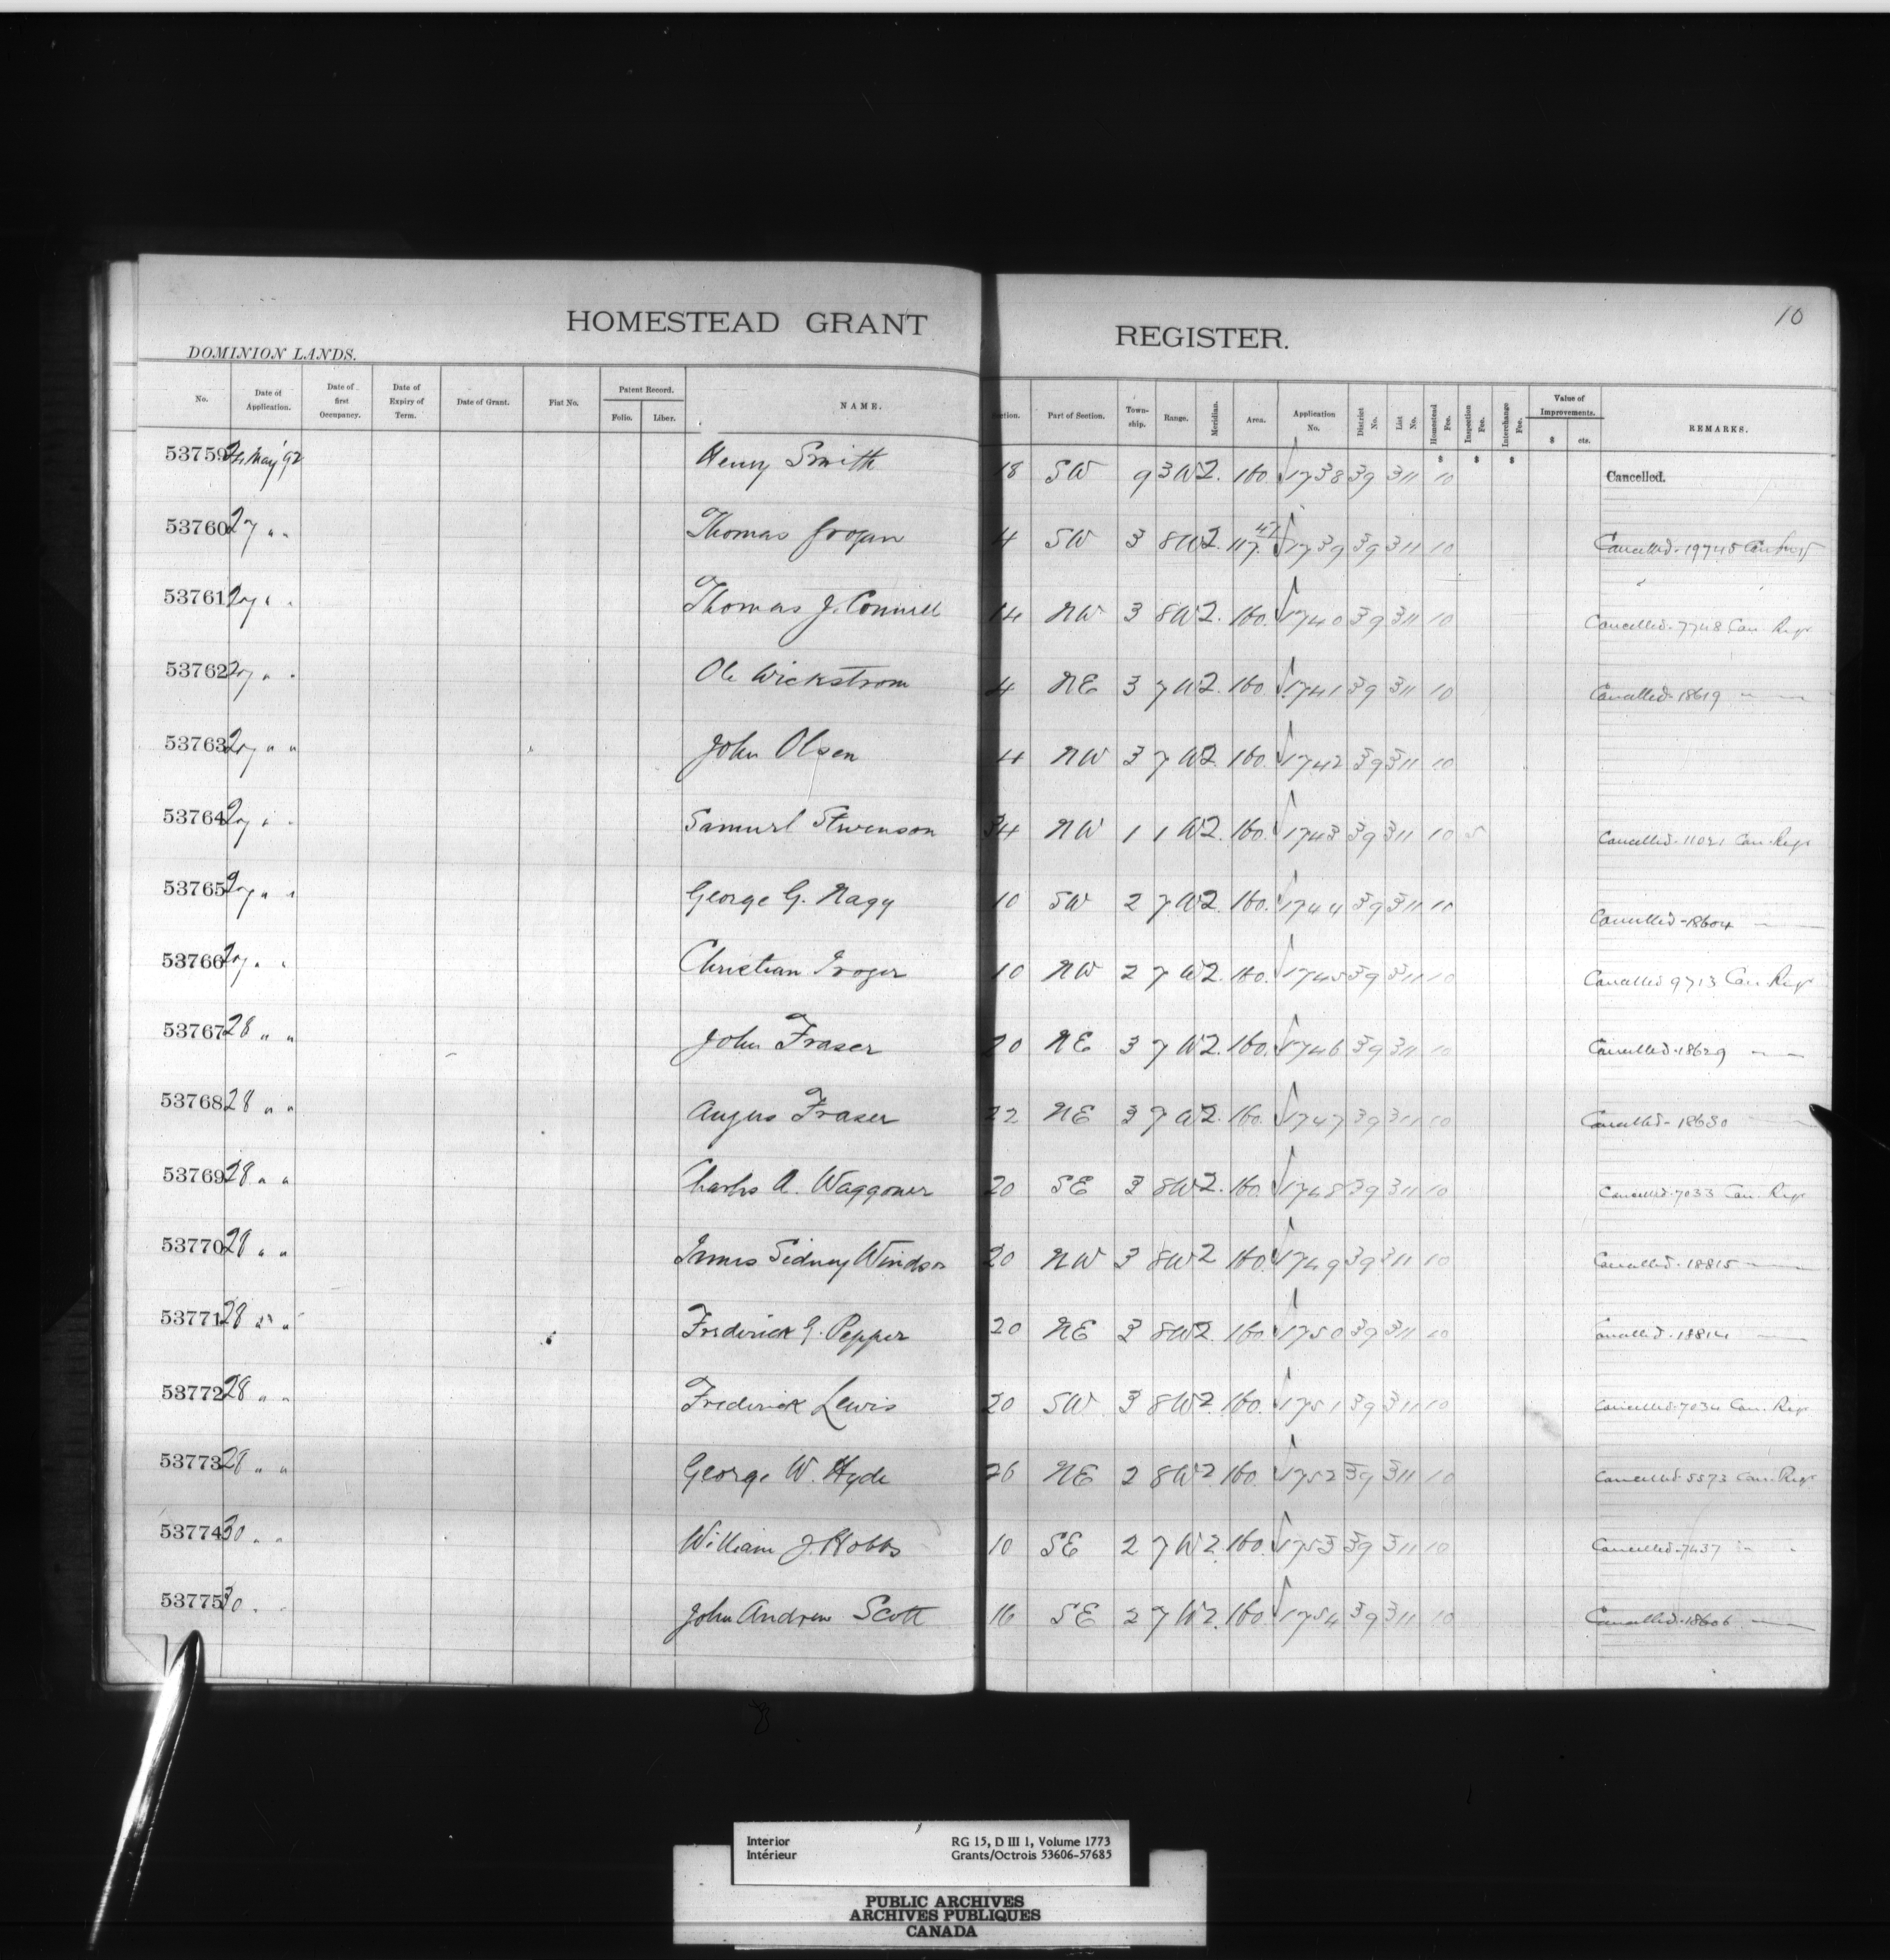 10
HOMESTEAD GRANT REGISTER.
DOMINION LANDS.
No. Date of Application. Date of first Occupancy. Date of Expiry of Term. Date of Grant. Fiat No. Patent Record. Folio. Liber. NAME. Section. Part of Section. Town-ship. Range. Meridian. Area. Application No. District No. List No. Homestead Fee. Inspection Fee. Interchange Fee. Value of Improvements. $ cts. REMARKS.
$ $ $
53759 May '92 Henry Smith 18 SW 9 3 W2. 160. 1738 39 311 10 Cancelled.
53760 27 " " Thomas Grogan 4 SW 3 8 W2. 117. 47 1739 39 311 10 Cancelled. 19745
53761 27 " " Thomas J. Connell 14 NW 3 8 W2. 160. 1740 39 311 10 Cancelled. 7748 Can. Regr
53762 27 " " Ole Wickstrom 4 NE 3 7 W2. 160. 1741 39 311 10 Cancelled. 18619 " —
53763 27 " " John Olsen 4 NW 3 7 W2. 160. 1742 39 311 10
53764 27 " " Samuel Stevenson 34 NW 1 1 W2. 160. 1743 39 311 10 5 Cancelled. 11021 Can. Regr
53765 27 " " George G. Nagy 10 SW 2 7 W2. 160. 1744 39 311 10 Cancelled - 18604 —
53766 27 " " Christian Troger 10 NW 2 7 W2. 160. 1745 39 311 10 Cancelled 9713 Can. Regr
53767 28 " " John Fraser 20 NE 3 7 W2. 160. 1746 39 311 10 Cancelled. 18629 " —
53768 28 " " Angus Fraser 22 NE 3 7 W2. 160. 1747 39 311 10 Cancelled - 18630 —
53769 28 " " Charles A. Waggoner 20 SE 3 8 W2. 160. 1748 39 311 10 Cancelled. 7033 Can. Regr
53770 28 " " James Sidney Windsor 20 NW 3 8 W2 160. 1749 39 311 10 Cancelled. 18815 —
53771 28 " " Frederick G. Pepper 20 NE 3 8 W2. 160. 1750 39 311 10 Cancelled. 18814 —
53772 28 " " Frederick Lewis 20 SW 3 8 W2. 160. 1751 39 311 10 Cancelled. 7034 Can. Regr
53773 28 " " George W. Hyde 26 NE 2 8 W2 160. 1752 39 311 10 Cancelled. 5573 Can. Regr
53774 30 " " William J. Hobbs 10 SE 2 7 W2. 160. 1753 39 311 10 Cancelled. 7437 " "
53775 30 " " John Andrew Scott 16 SE 2 7 W2. 160. 1754 39 311 10 Cancelled. 18606 —
Interior RG 15, D III 1, Volume 1773
Intérieur Grants/Octrois 53606-57685
PUBLIC ARCHIVES
ARCHIVES PUBLIQUES
CANADA